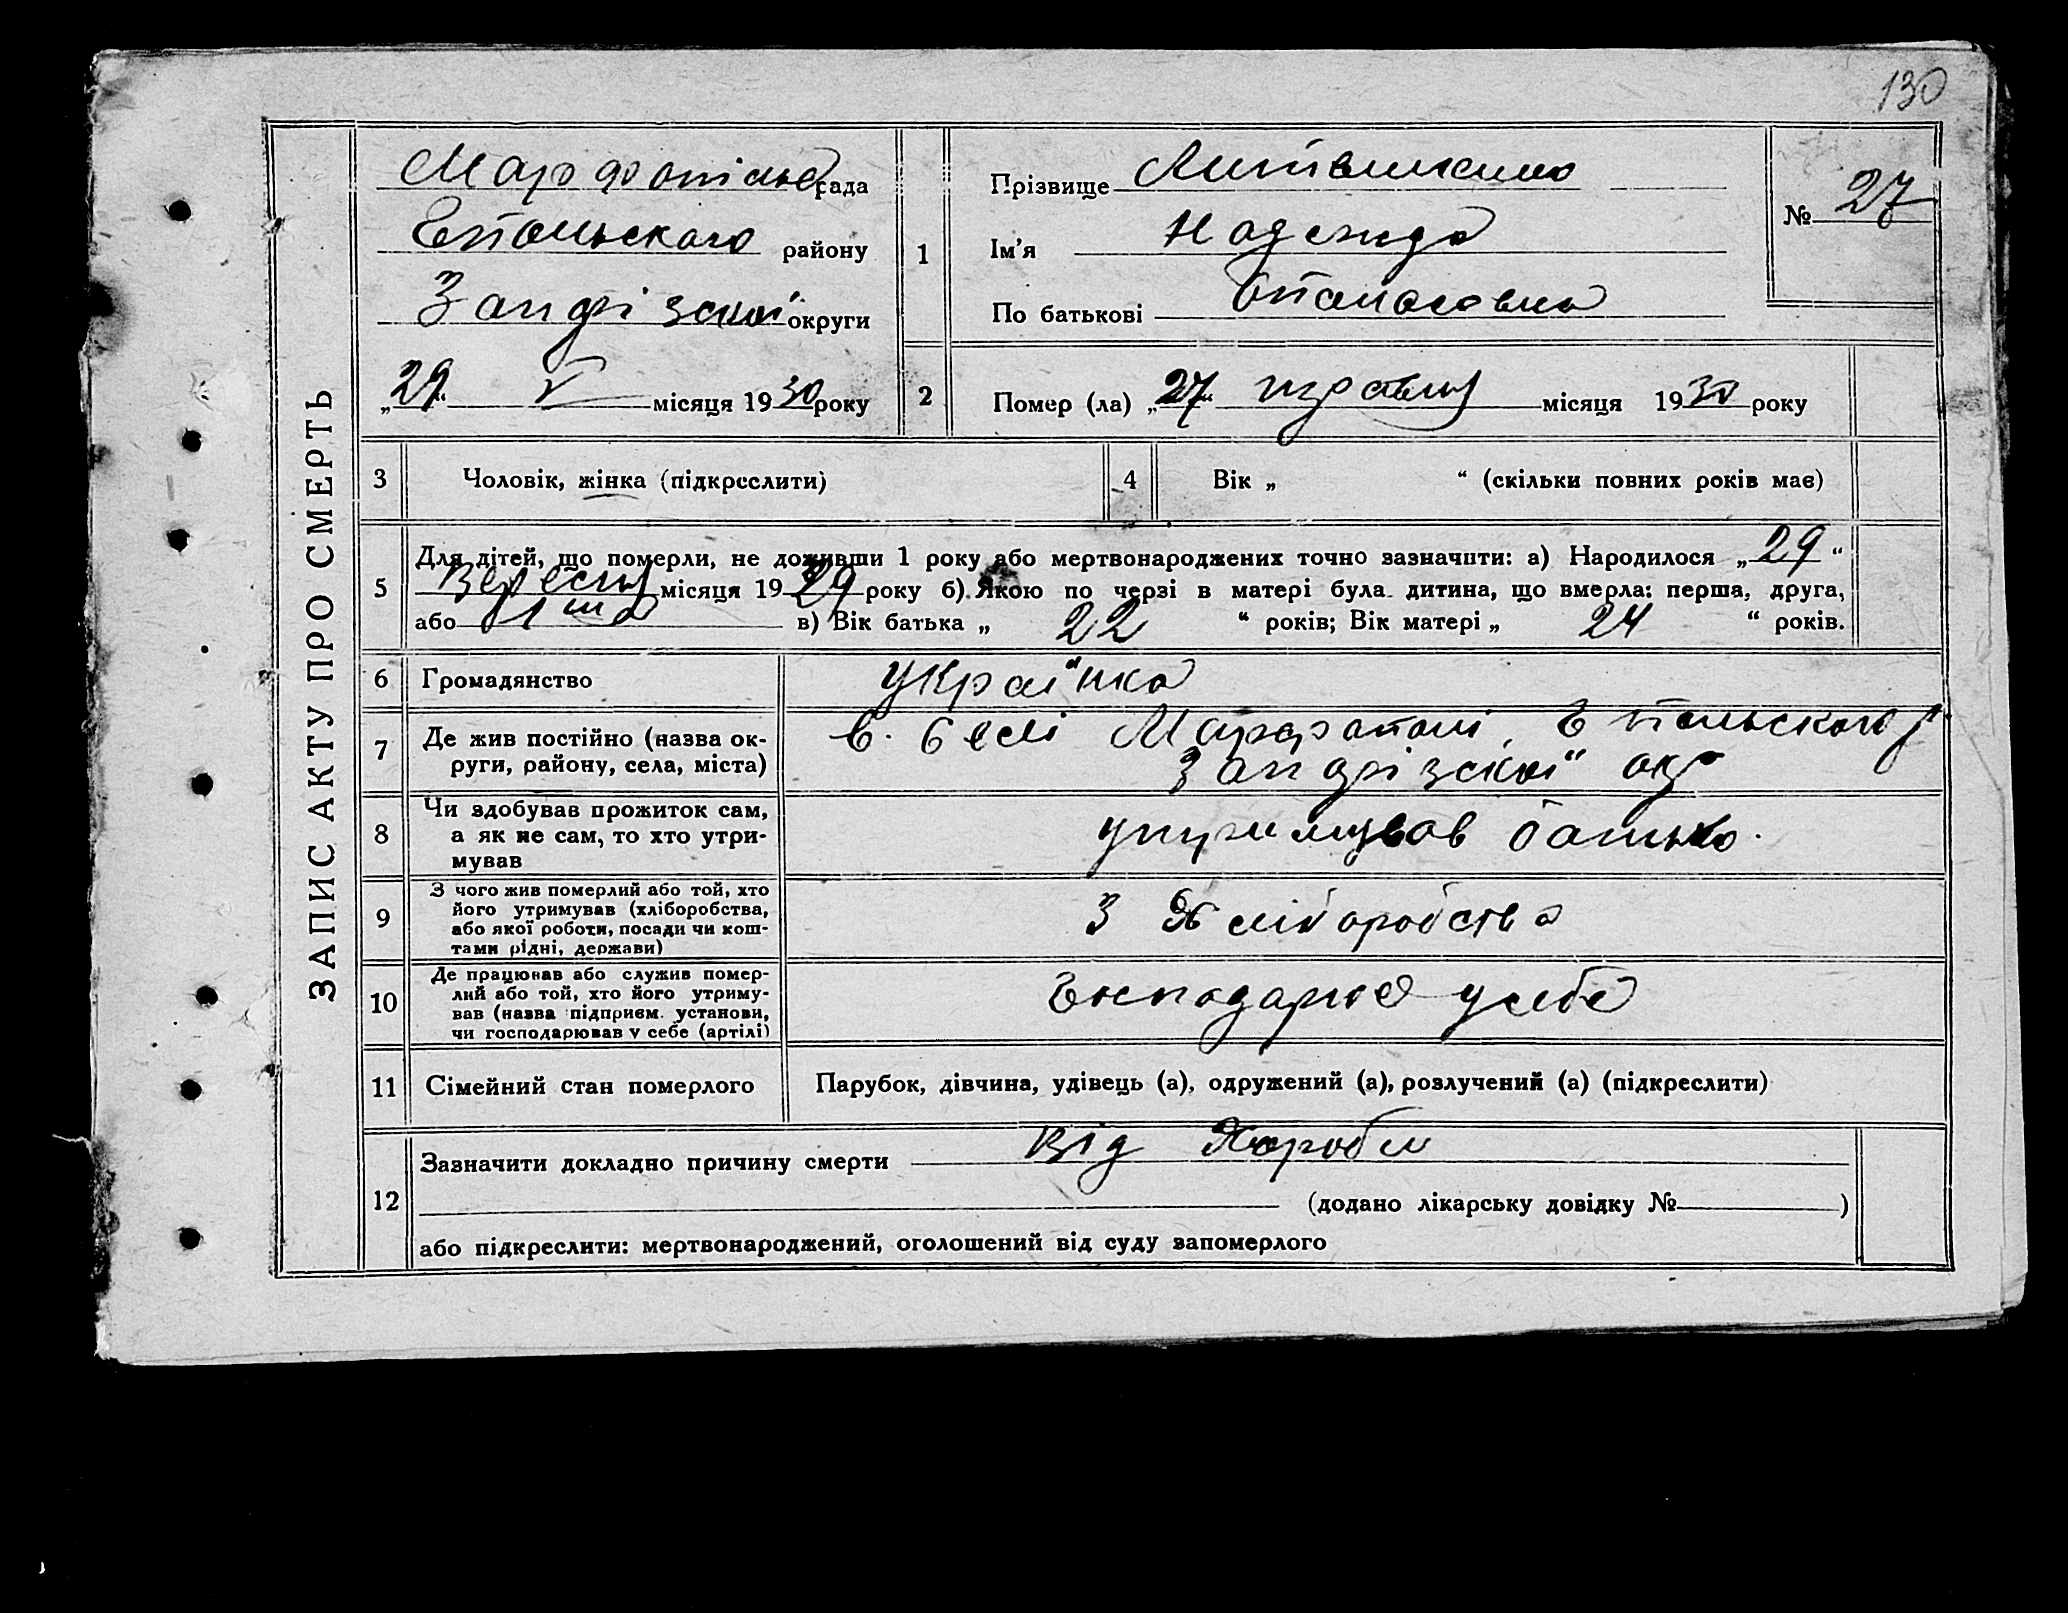 130
ЗАПИС АКТУ ПРО СМЕРТЬ
Марфопільс рада
Єпольского району
Запорізскої округи
„29“ V місяця 1930 року
1
Прізвище
Ім'я Надежда
По батькові Опанасовна
№ 27
2 Помер (ла) „27“ травня місяця 1930 року
3 Чоловік, жінка (підкреслити)
4 Вік „ “ (скільки повних років має)
5 Для дітей, що померли, не доживши 1 року або мертвонароджених точно зазначити: а) Народилося „29“
Вересня місяця 1929 року б) Якою по черзі в матері була дитина, що вмерла: перша, друга,
або 1ша в) Вік батька „ 22 “ років; Вік матері „ 24 “ років.
6 Громадянство українка
7 Де жив постійно (назва округи, району, села, міста) в. селі Марфополі, Єпольского р.
Запорізскої окр
8 Чи здобував прожиток сам, а як не сам, то хто утримував утримував батько.
9 З чого жив померлий або той, хто його утримував (хліборобства, або якої роботи, посади чи коштами рідні, держави) З Хліборобства
10 Де працював або служив померлий або той, хто його утримував (назва підприєм. установи, чи господарював у себе (артілі) Господарює у себе
11 Сімейний стан померлого Парубок, дівчина, удівець (а), одружений (а), розлучений (а) (підкреслити)
12 Зазначити докладно причину смерти Від Хороби
(додано лікарську довідку № )
або підкреслити: мертвонароджений, оголошений від суду запомерлого